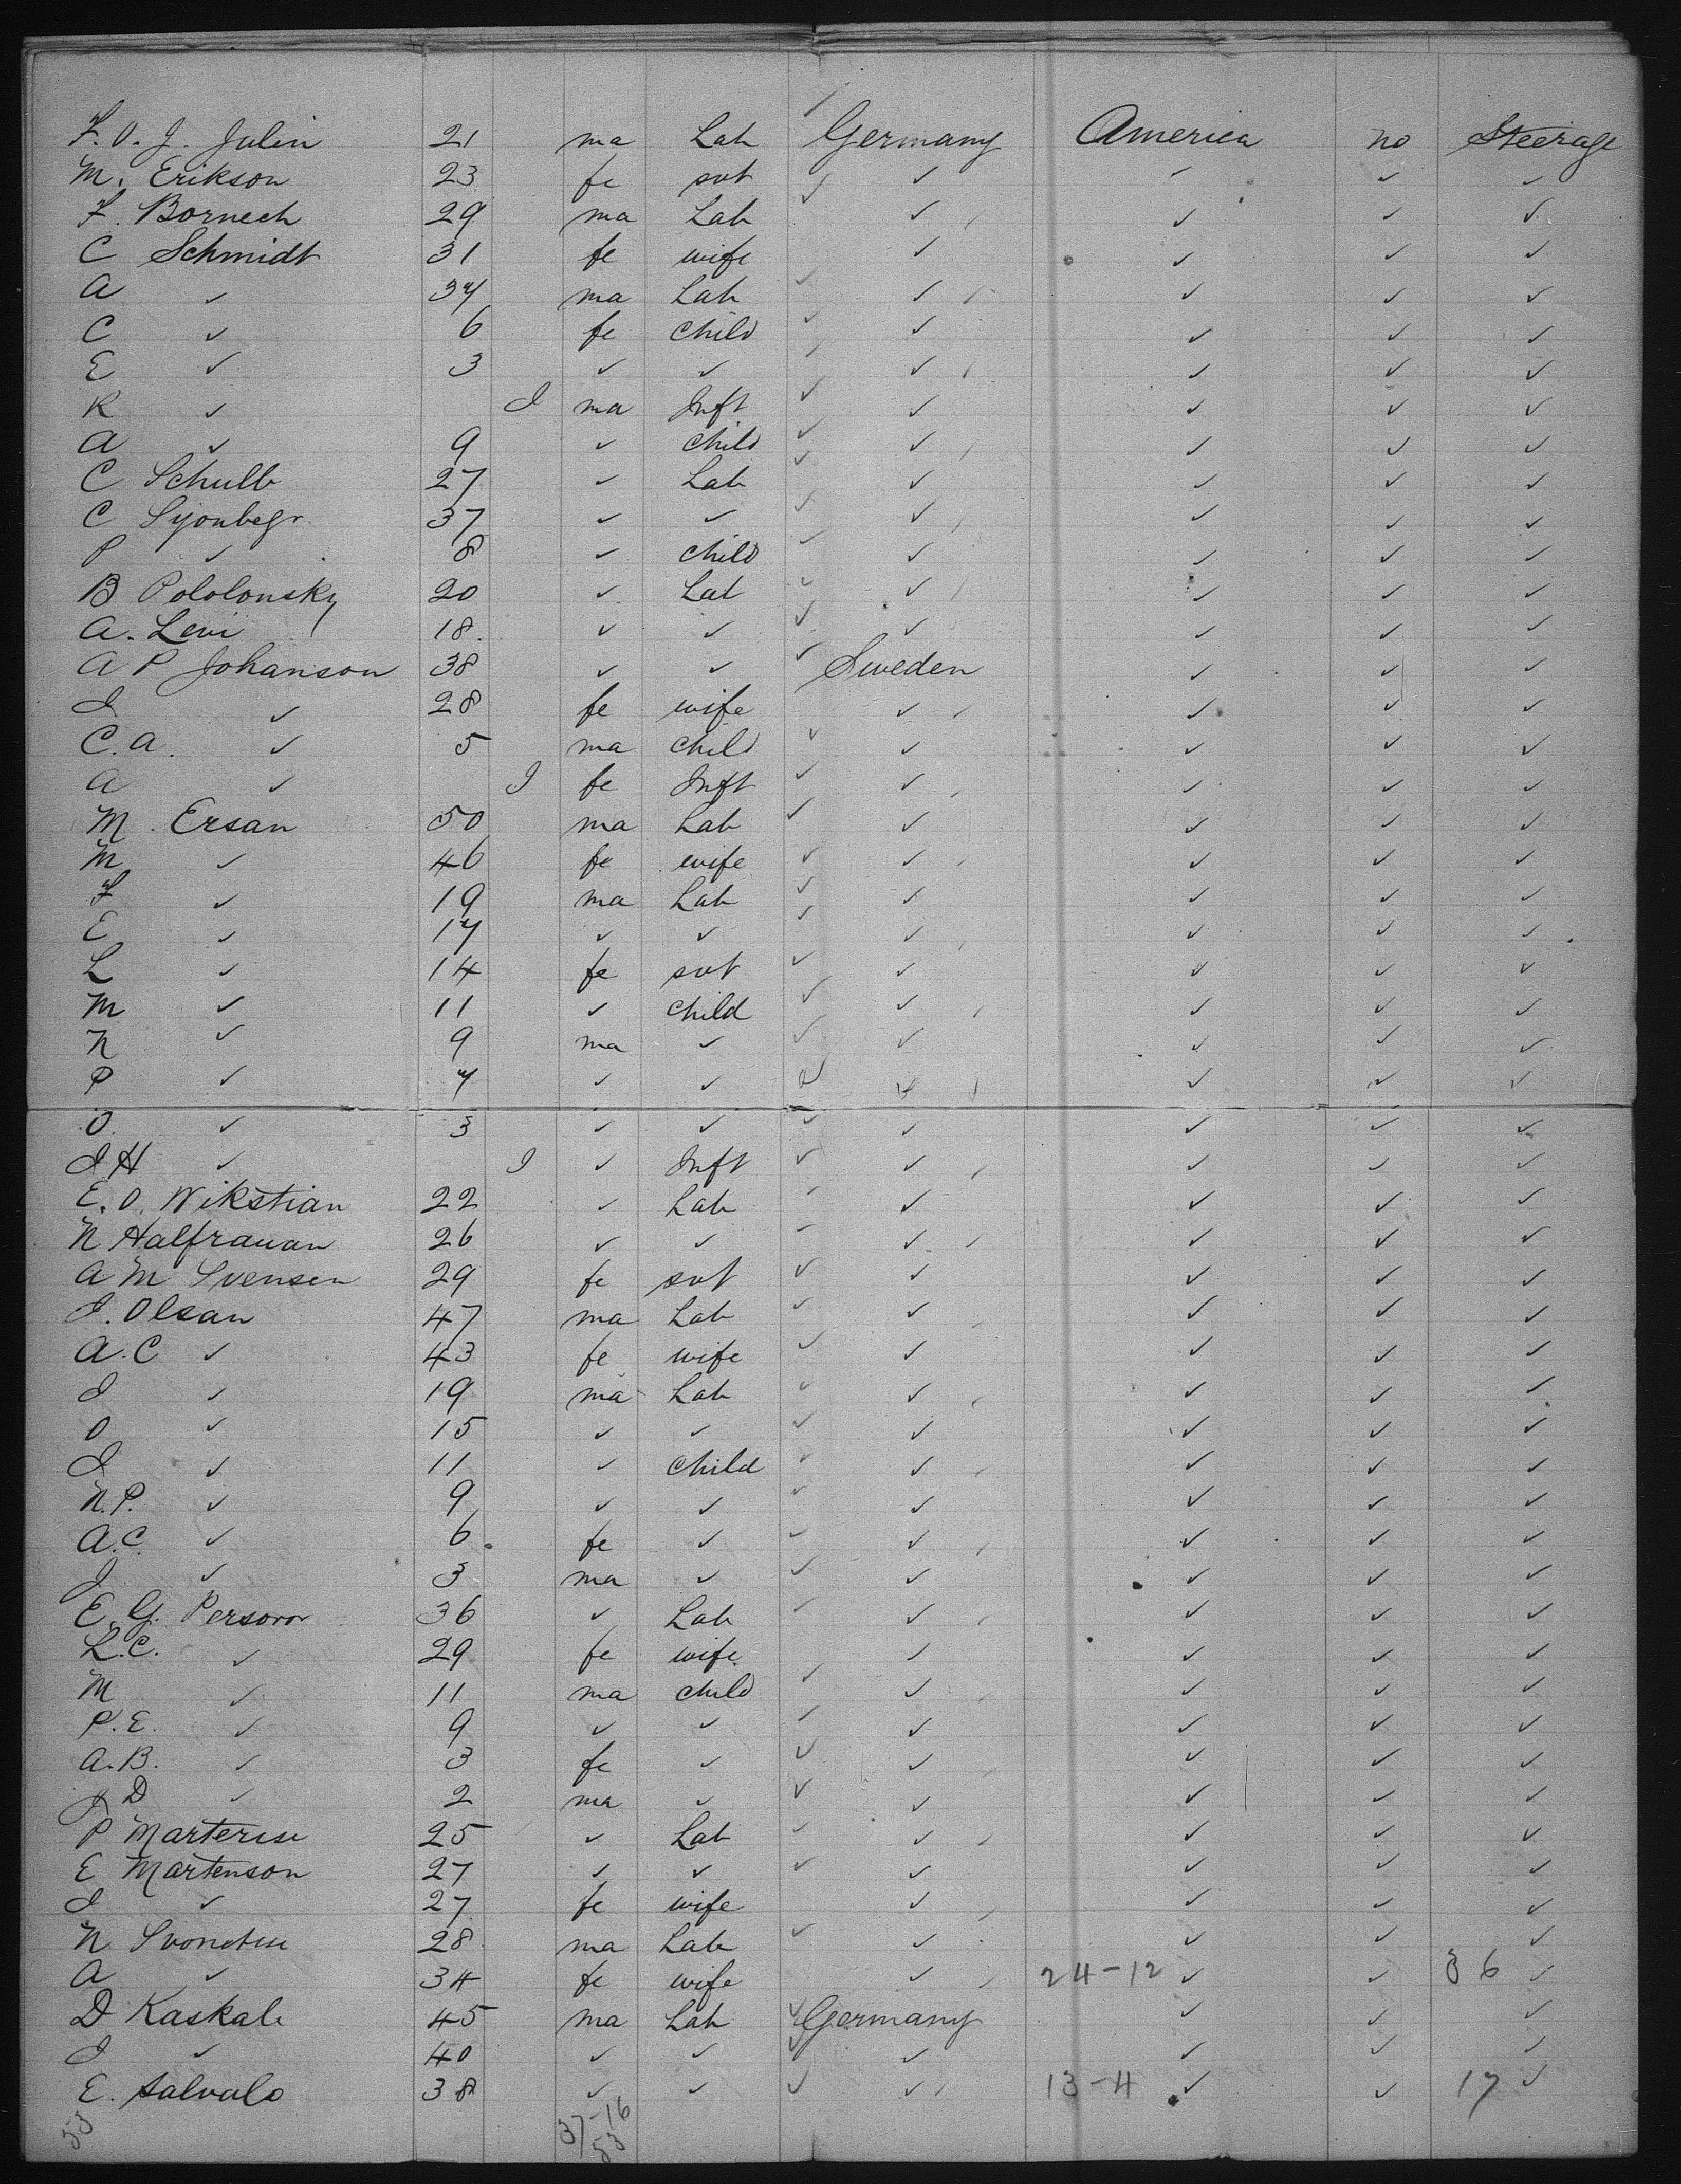 F. O. J. Julin 21 ma Lab Germany America no Steerage
M. Erikson 23 fe svt ✓ ✓ ✓ ✓
F. Bornech 29 ma Lab ✓ ✓ ✓ ✓
C Schmidt 31 fe wife ✓ ✓ ✓ ✓
A ✓ 34 ma Lab ✓ ✓ ✓ ✓
C ✓ 6 fe child ✓ ✓ ✓ ✓
E ✓ 3 ✓ ✓ ✓ ✓ ✓ ✓
K ✓ I ma Inft ✓ ✓ ✓ ✓
A ✓ 9 ✓ child ✓ ✓ ✓ ✓
C Schulb 27 ✓ Lab ✓ ✓ ✓ ✓
C Syonbegr 37 ✓ ✓ ✓ ✓ ✓ ✓
P ✓ 8 ✓ child ✓ ✓ ✓ ✓
B Pololonsky 20 ✓ Lab ✓ ✓ ✓ ✓
A. Levi 18 ✓ ✓ ✓ ✓ ✓ ✓
A P Johanson 38 ✓ ✓ Sweden ✓ ✓ ✓
I ✓ 28 fe wife ✓ ✓ ✓ ✓
C. A. ✓ 5 ma child ✓ ✓ ✓ ✓
A ✓ I fe Inft ✓ ✓ ✓ ✓
M. Ersan 50 ma Lab ✓ ✓ ✓ ✓
M ✓ 46 fe wife ✓ ✓ ✓ ✓
F ✓ 19 ma Lab ✓ ✓ ✓ ✓
E ✓ 17 ✓ ✓ ✓ ✓ ✓ ✓
L ✓ 14 fe svt ✓ ✓ ✓ ✓
M ✓ 11 ✓ child ✓ ✓ ✓ ✓
N ✓ 9 ma ✓ ✓ ✓ ✓ ✓
P ✓ 7 ✓ ✓ ✓ ✓ ✓ ✓
O ✓ 3 ✓ ✓ ✓ ✓ ✓ ✓
I H ✓ I ✓ Inft ✓ ✓ ✓ ✓
E. O. Wikstian 22 ✓ Lab ✓ ✓ ✓ ✓
N Halfrauan 26 ✓ ✓ ✓ ✓ ✓ ✓
A M Svensen 29 fe svt ✓ ✓ ✓ ✓
I. Olsan 47 ma Lab ✓ ✓ ✓ ✓
A. C ✓ 43 fe wife ✓ ✓ ✓ ✓
I ✓ 19 ma Lab ✓ ✓ ✓ ✓
O ✓ 15 ✓ ✓ ✓ ✓ ✓ ✓
I ✓ 11 ✓ child ✓ ✓ ✓ ✓
N. P. ✓ 9 ✓ ✓ ✓ ✓ ✓ ✓
A. C. ✓ 6 fe ✓ ✓ ✓ ✓ ✓
J ✓ 3 ma ✓ ✓ ✓ ✓ ✓
E. G. Persoon 36 ✓ Lab ✓ ✓ ✓ ✓
L. C. ✓ 29 fe wife ✓ ✓ ✓ ✓
M ✓ 11 ma child ✓ ✓ ✓ ✓
P. E. ✓ 9 ✓ ✓ ✓ ✓ ✓ ✓
A. B. ✓ 3 fe ✓ ✓ ✓ ✓ ✓
J D ✓ 2 ma ✓ ✓ ✓ ✓ ✓
P Marterese 25 ✓ Lab ✓ ✓ ✓ ✓
E Martenson 27 ✓ ✓ ✓ ✓ ✓ ✓
I ✓ 27 fe wife ✓ ✓ ✓ ✓
N 28 ma Lab ✓ ✓ ✓ ✓
A ✓ 34 fe wife ✓ 24-12 ✓ ✓ 36 ✓
D Kaskale 45 ma Lab Germany ✓ ✓ ✓
I ✓ 40 ✓ ✓ ✓ ✓ ✓ ✓
E. Salvalo 38 ✓ ✓ ✓ 13-4 ✓ ✓ 17 ✓
53 37-16
53